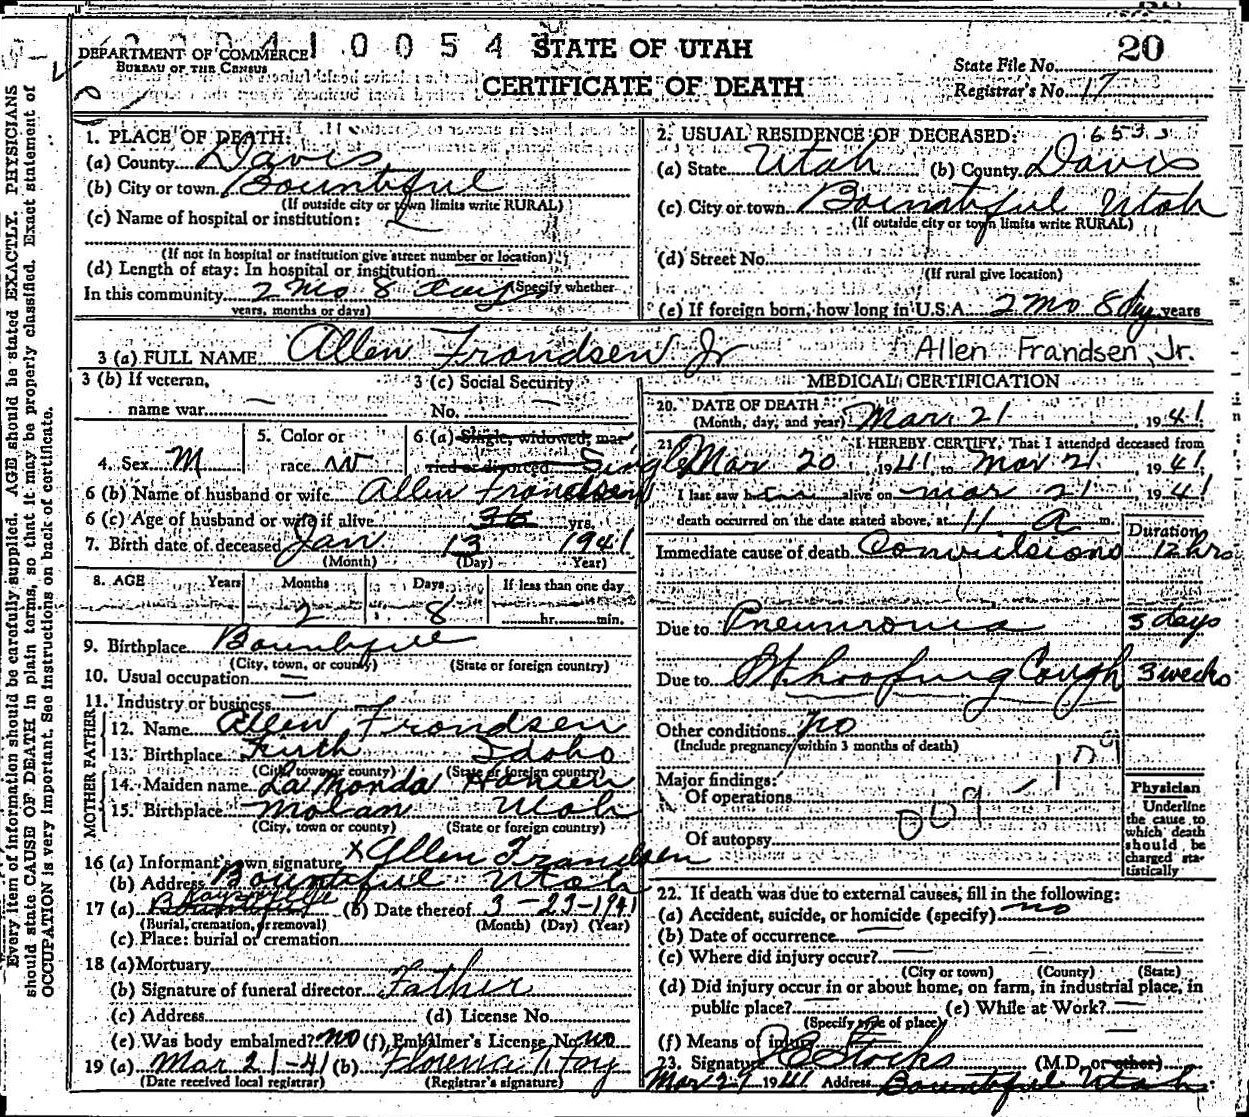 2 0 0 4 1 0 0 5 4
DEPARTMENT OF COMMERCE
BUREAU OF THE CENSUS
STATE OF UTAH
CERTIFICATE OF DEATH
20
State File No.
Registrar's No. 17
1. PLACE OF DEATH:
(a) County Davis
(b) City or town Bountiful
(If outside city or town limits write RURAL)
(c) Name of hospital or institution:
(If not in hospital or institution give street number or location)
(d) Length of stay: In hospital or institution
In this community 2 mo 8 days (Specify whether
years, months or days)
2. USUAL RESIDENCE OF DECEASED:
(a) State Utah (b) County Davis
(c) City or town Bountiful Utah
(If outside city or town limits write RURAL)
(d) Street No.
(If rural give location)
(e) If foreign born, how long in U.S.A. 2 mo 8 dys years
3 (a) FULL NAME Allen Frandsen Jr Allen Frandsen, Jr.
3 (b) If veteran,
name war —
3 (c) Social Security
No. —
4. Sex M
5. Color or
race W
6 (a) Single, widowed, mar-
ried or divorced Single
6 (b) Name of husband or wife Allen Frandsen
6 (c) Age of husband or wife if alive 36 yrs.
7. Birth date of deceased Jan 13 1941
(Month) (Day) (Year)
8. AGE Years Months Days If less than one day
2 8 hr. min.
9. Birthplace Bountiful
(City, town, or county) (State or foreign country)
10. Usual occupation —
11. Industry or business —
FATHER
12. Name Allen Frandsen
13. Birthplace Firth Idaho
(City, town or county) (State or foreign country)
MOTHER
14. Maiden name La Monda Hansen
15. Birthplace Utah
(City, town or county) (State or foreign country)
16 (a) Informant's own signature x Allen Frandsen
(b) Address Bountiful Utah
17 (a) Bountiful (b) Date thereof 3-23-1941
(Burial, cremation, or removal) (Month) (Day) (Year)
(c) Place: burial or cremation
18 (a) Mortuary
(b) Signature of funeral director Father
(c) Address (d) License No.
(e) Was body embalmed? no (f) Embalmer's License No. no
19 (a) Mar 21-41 (b) Florence Foy
(Date received local registrar) (Registrar's signature)
MEDICAL CERTIFICATION
20. DATE OF DEATH
(Month, day, and year) Mar. 21 1941
21. I HEREBY CERTIFY, That I attended deceased from
Mar 20 1941 to Mar 21 1941;
I last saw h im alive on Mar 21 1941
death occurred on the date stated above, at 11 A m.
Duration
Immediate cause of death Convulsions 12 hrs
Due to Pneumonia 3 days
Due to Whooping Cough 3 weeks
Other conditions no
(Include pregnancy within 3 months of death)
Major findings:
Of operations
Of autopsy
009 - 109
Physician
Underline
the cause to
which death
should be
charged sta-
tistically
22. If death was due to external causes, fill in the following:
(a) Accident, suicide, or homicide (specify) no
(b) Date of occurrence —
(c) Where did injury occur? —
(City or town) (County) (State)
(d) Did injury occur in or about home, on farm, in industrial place, in
public place? — (e) While at Work? —
(Specify type of place)
(f) Means of injury
23. Signature Stocks (M.D. or other)
Mar 27 1941 Address Bountiful Utah
Every item of information should be carefully supplied. AGE should be stated EXACTLY. PHYSICIANS
should state CAUSE OF DEATH in plain terms, so that it may be properly classified. Exact statement of
OCCUPATION is very important. See instructions on back of certificate.